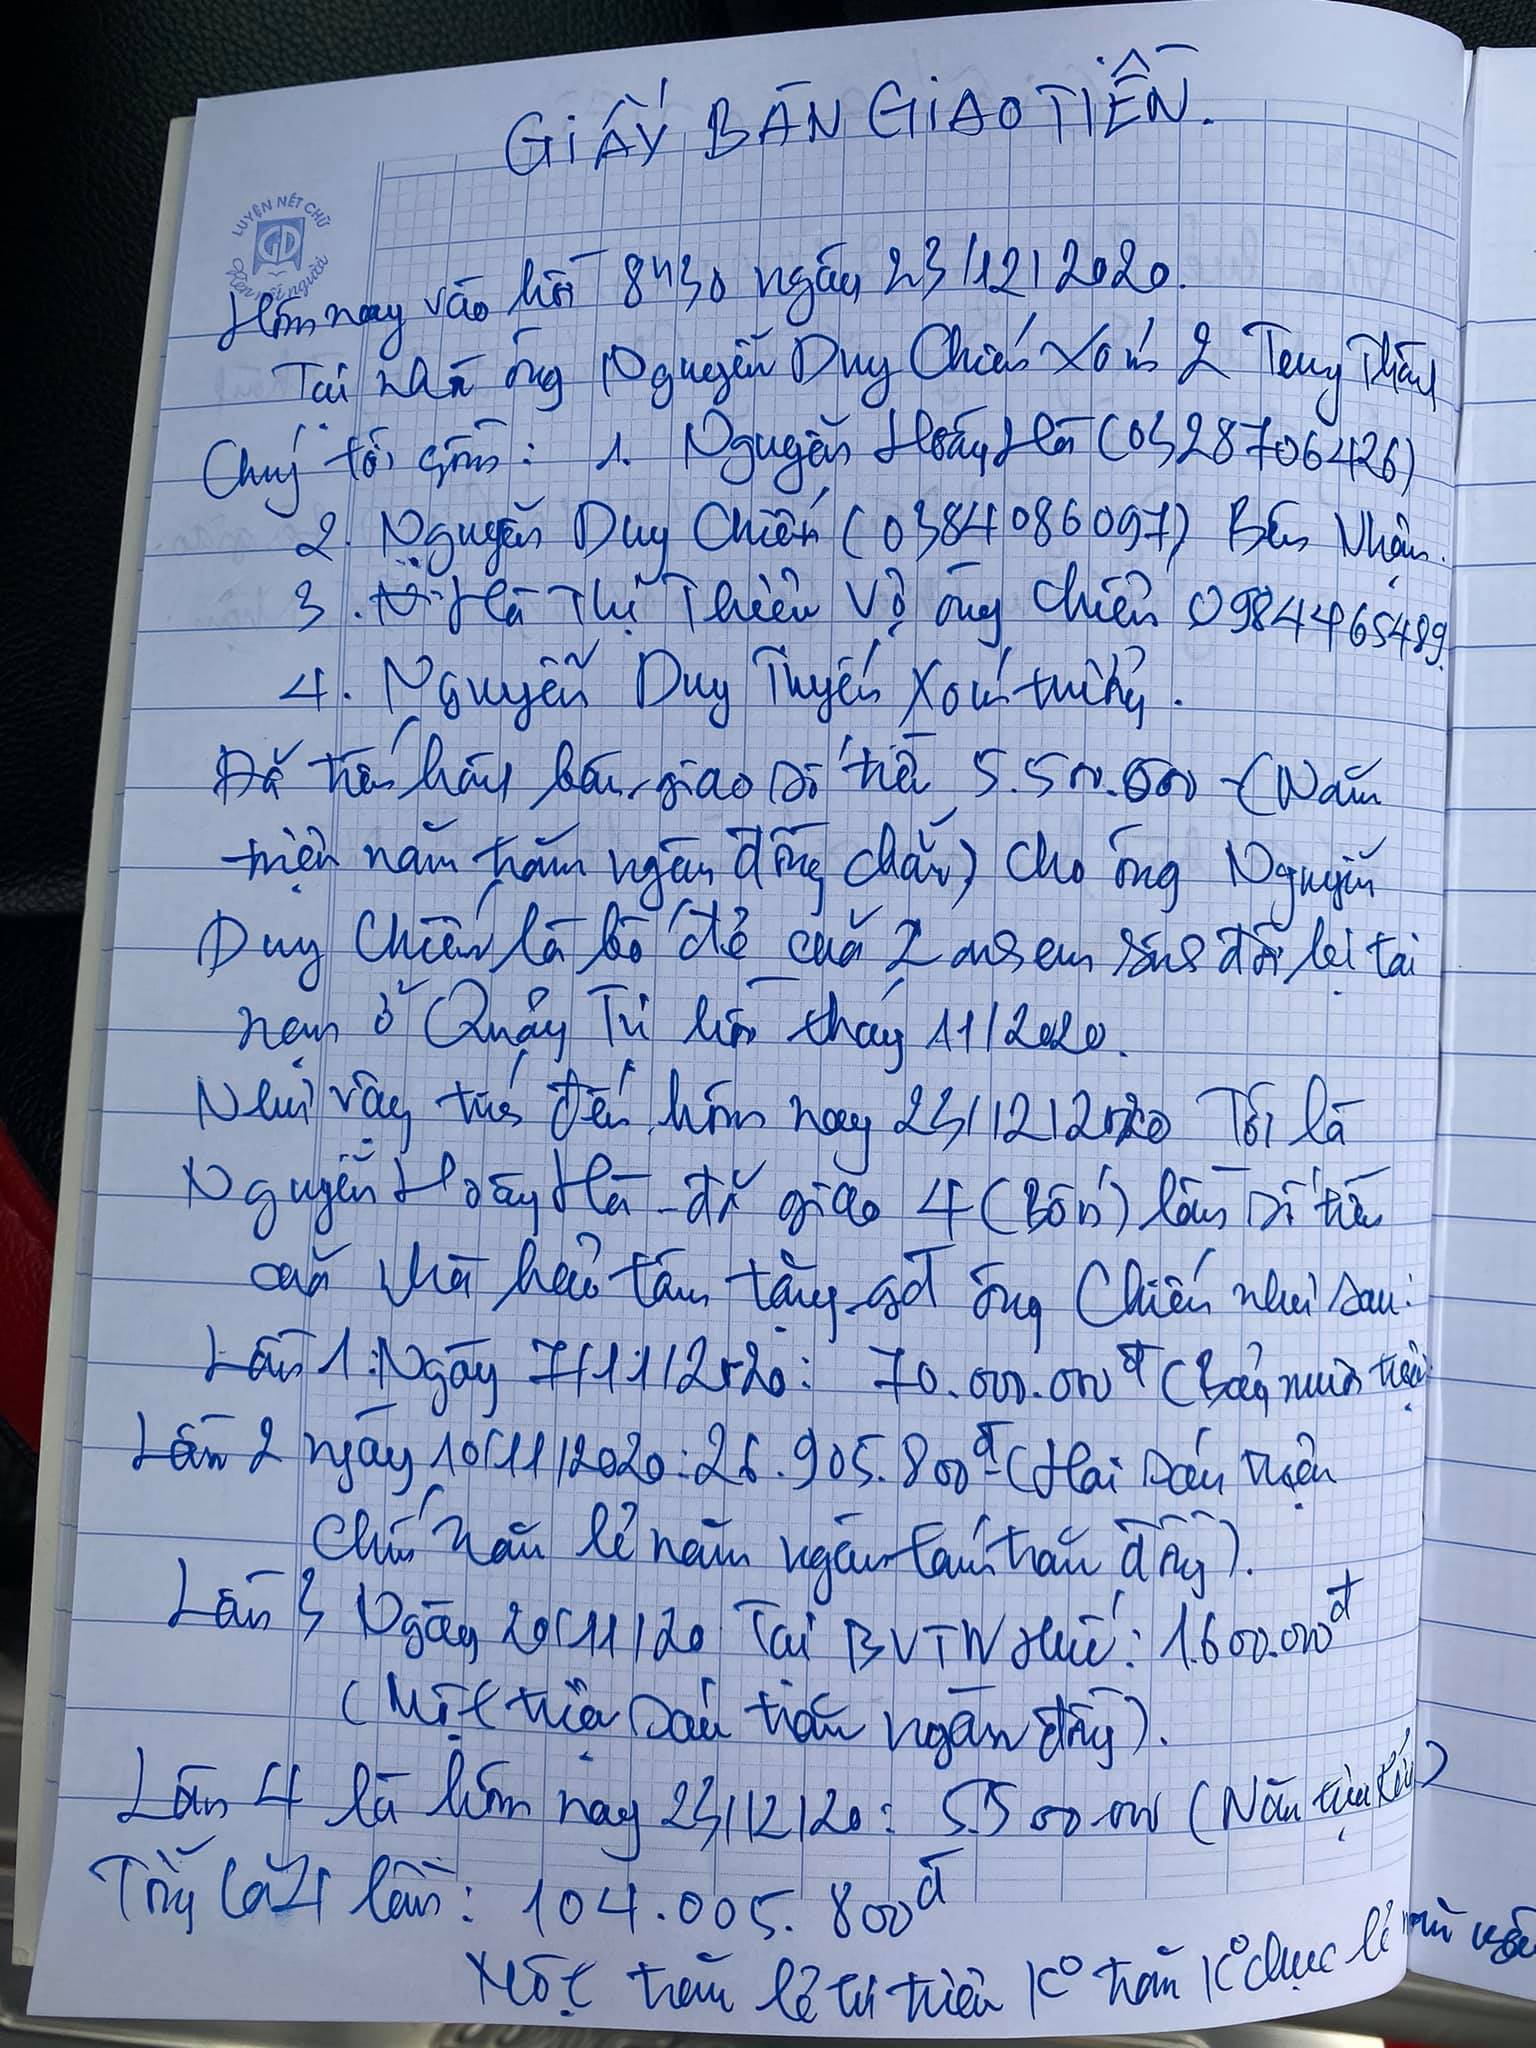 GIẤY BÀN GIAO TIỀN.
LUYỆN NÉT CHỮ
GD
Rèn nết người
Hôm nay vào hồi 8h30 ngày 23/12/2020.
Tại nhà ông Nguyễn Duy Chiến Xóm 2 Trung Thành
Chúng tôi gồm: 1. Nguyễn Hoàng Hà (0328706426)
2. Nguyễn Duy Chiến (0384086097) Bên Nhận.
3. Hà Thị Thiên Vợ ông Chiến 0984465489.
4. Nguyễn Duy Tuyến Xóm trưởng.
Đã tiến hành bàn giao số tiền 5.500.000 (Năm
triệu năm trăm ngàn đồng chẵn) cho ông Nguyễn
Duy Chiến là bố đẻ của 2 anh em song đôi bị tai
nạn ở Quảng Trị hồi tháng 11/2020.
Như vậy tính đến hôm nay 23/12/2020 Tôi là
Nguyễn Hoàng Hà đã giao 4 (Bốn) lần số tiền
của nhà hảo tâm tặng gđ ông Chiến như sau:
Lần 1: Ngày 7/11/2020: 70.000.000đ (Bảy mươi triệu
Lần 2 ngày 10/11/2020: 26.905.800đ (Hai sáu triệu
chín trăm lẻ năm ngàn tám trăm đồng).
Lần 3 Ngày 20/11/20 Tại BVTW Huế: 1.600.000đ
(Một triệu sáu trăm ngàn đồng).
Lần 4 là hôm nay 23/12/20: 5.500.000 (Năm triệu rưỡi)
Tổng cả 4 lần: 104.005.800đ
Một trăm lẻ tư triệu K° trăm K° chục lẻ năm ngàn